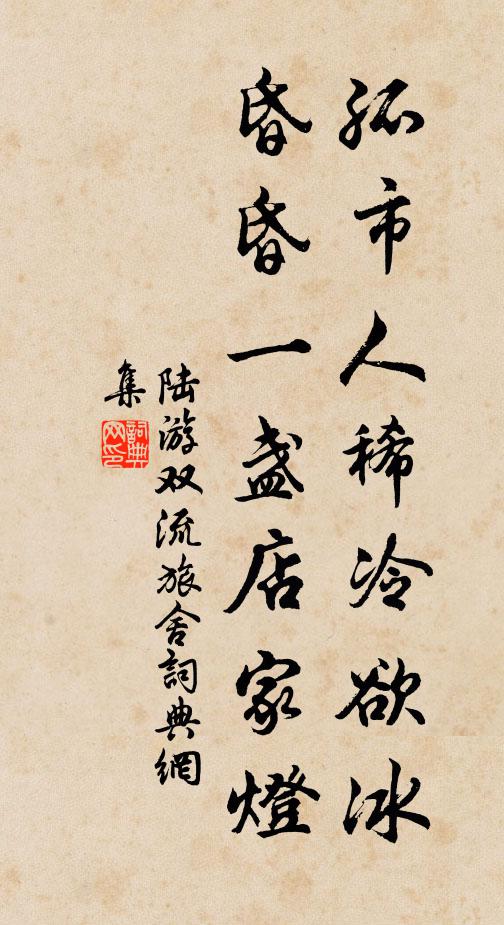 孤市人稀冷欲冰
昏昏一盏店家燈
陆游双流旅舍詞典網
集
詞典网印